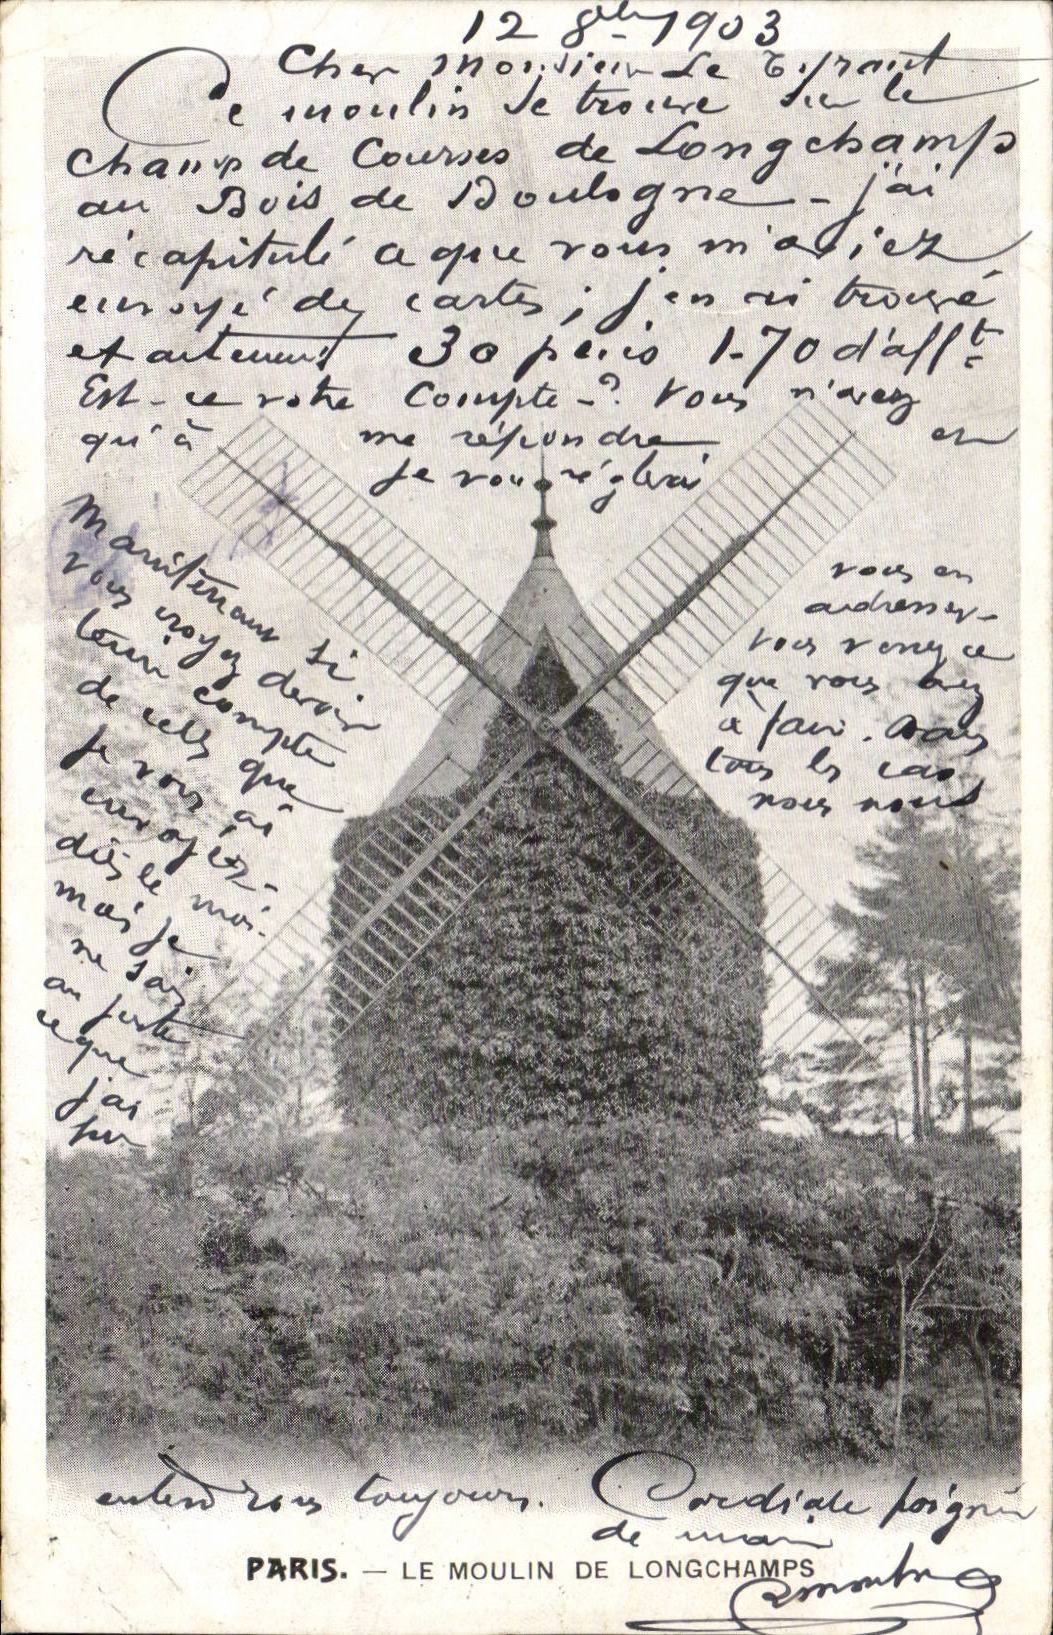 12 8bre 1903
Cher Monsieur Le
Ce moulin se trouve sur le
champ de Courses de Longchamps
au Bois de Boulogne - j'ai
récapitulé ce que vous m'aviez
envoyé de cartes ; j'en ai trouvé
exactement 30 puis 1.70 d'afft
Est-ce votre Compte - ? Vous n'avez
qu'à me répondre et
je vous réglerai
Maintenant si
vous croyez devoir
tenir compte
de celles que
je vous ai
envoyez -
dites le moi.
mais je
ne sais
au juste
ce que
j'ai
pu
vous en
adresser -
Vous verrez ce
que vous avez
à faire. Dans
tous les cas
nous nous
entendrons toujours. Cordiale poignée
de main
PARIS. — LE MOULIN DE LONGCHAMPS